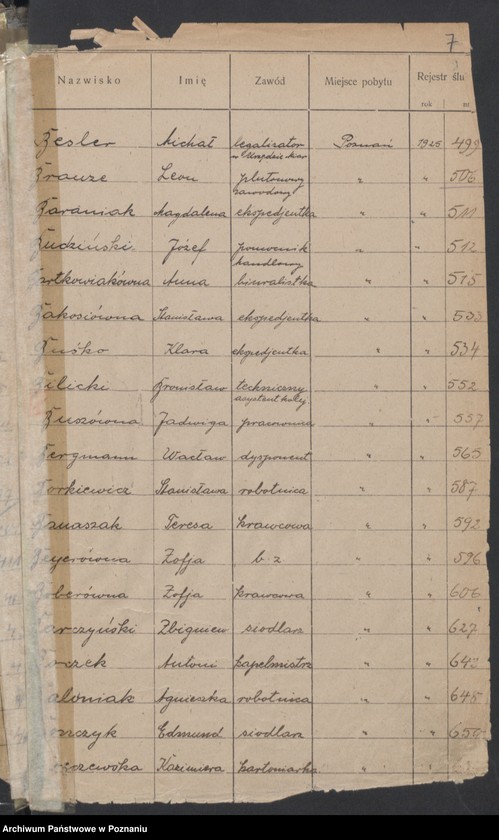 7
Nazwisko Imię Zawód Miejsce pobytu Rejestr ślu
rok nr
Besler Michał legalizator Poznań 1925 499
w Urzędzie Miar
Brauze Leon plutonowy " " 506
zawodowy
Baraniak Magdalena ekspedjentka " " 511
Budziński Józef pomocnik " " 512
handlowy
Bartkowiakówna Anna biuralistka " " 515
Bakosiówna Stanisława ekspedjentka " "
Buśko Klara ekspedjentka " " 534
Bilicki Bronisław techniczny " " 552
asystent
Jadwiga " " 557
Bergmann Wacław dysponent " " 565
Borkiewicz Stanisława robotnica " " 587
Banaszak Teresa krawcowa " " 592
Beyerówna Zofja b. z. " " 596
Boberówna Zofja krawcowa " " 606
Barczyński Zbigniew siodlarz " " 627
Antoni kapelmistrz " "
Agnieszka robotnica " " 645
Edmund siodlarz " " 650
Kazimiera kartoniarka " "
Archiwum Państwowe w Poznaniu